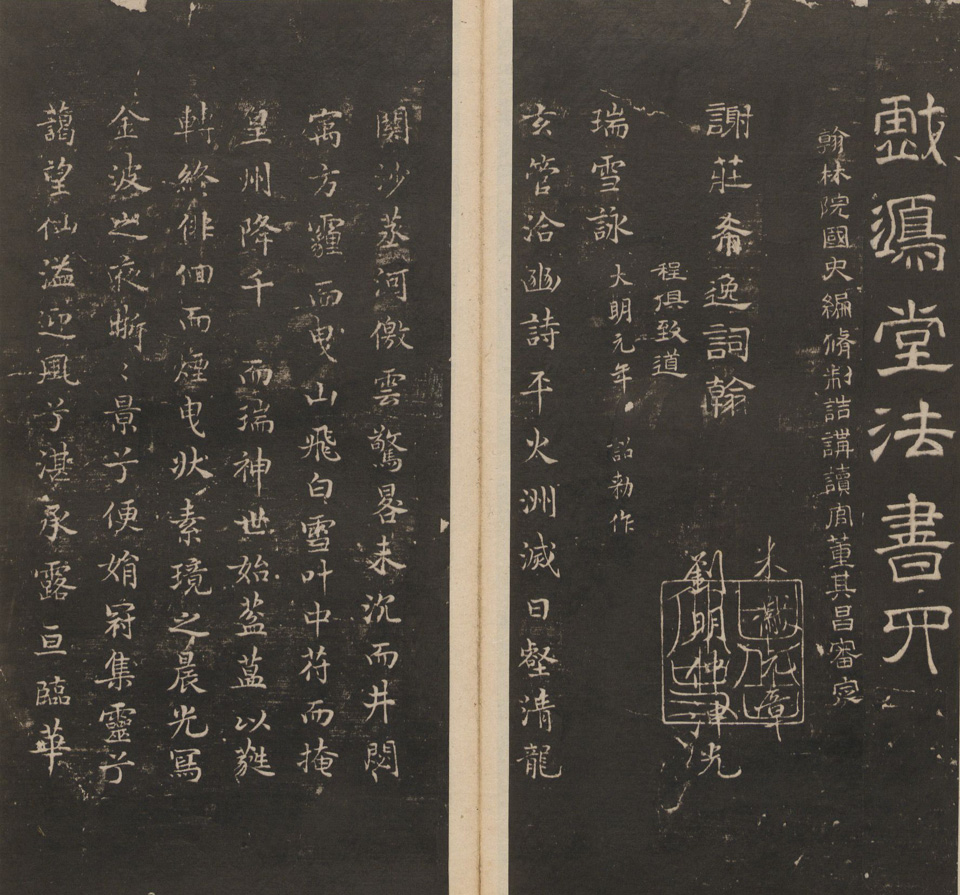 戲鴻堂法書四
翰林院國史編脩制誥講讀官董其昌審定
謝莊希逸詞翰
米黻元章
程俱致道
劉明仲
瑞雪詠 大明元年 詔勑作
玄管洽幽詩平火洲滅日壑清龍
關沙蒸河儌雲驚晷未沉而井閟
寓方霾而曳山飛白雪叶中苻而掩
皇州降千 而瑞神世始葐蒀以蕤
轉終徘徊而煙曳狀素境之晨光寫
金波之夜晣〻景兮便娟冠集靈兮
藹望仙溢迎風兮湛承露亘臨華